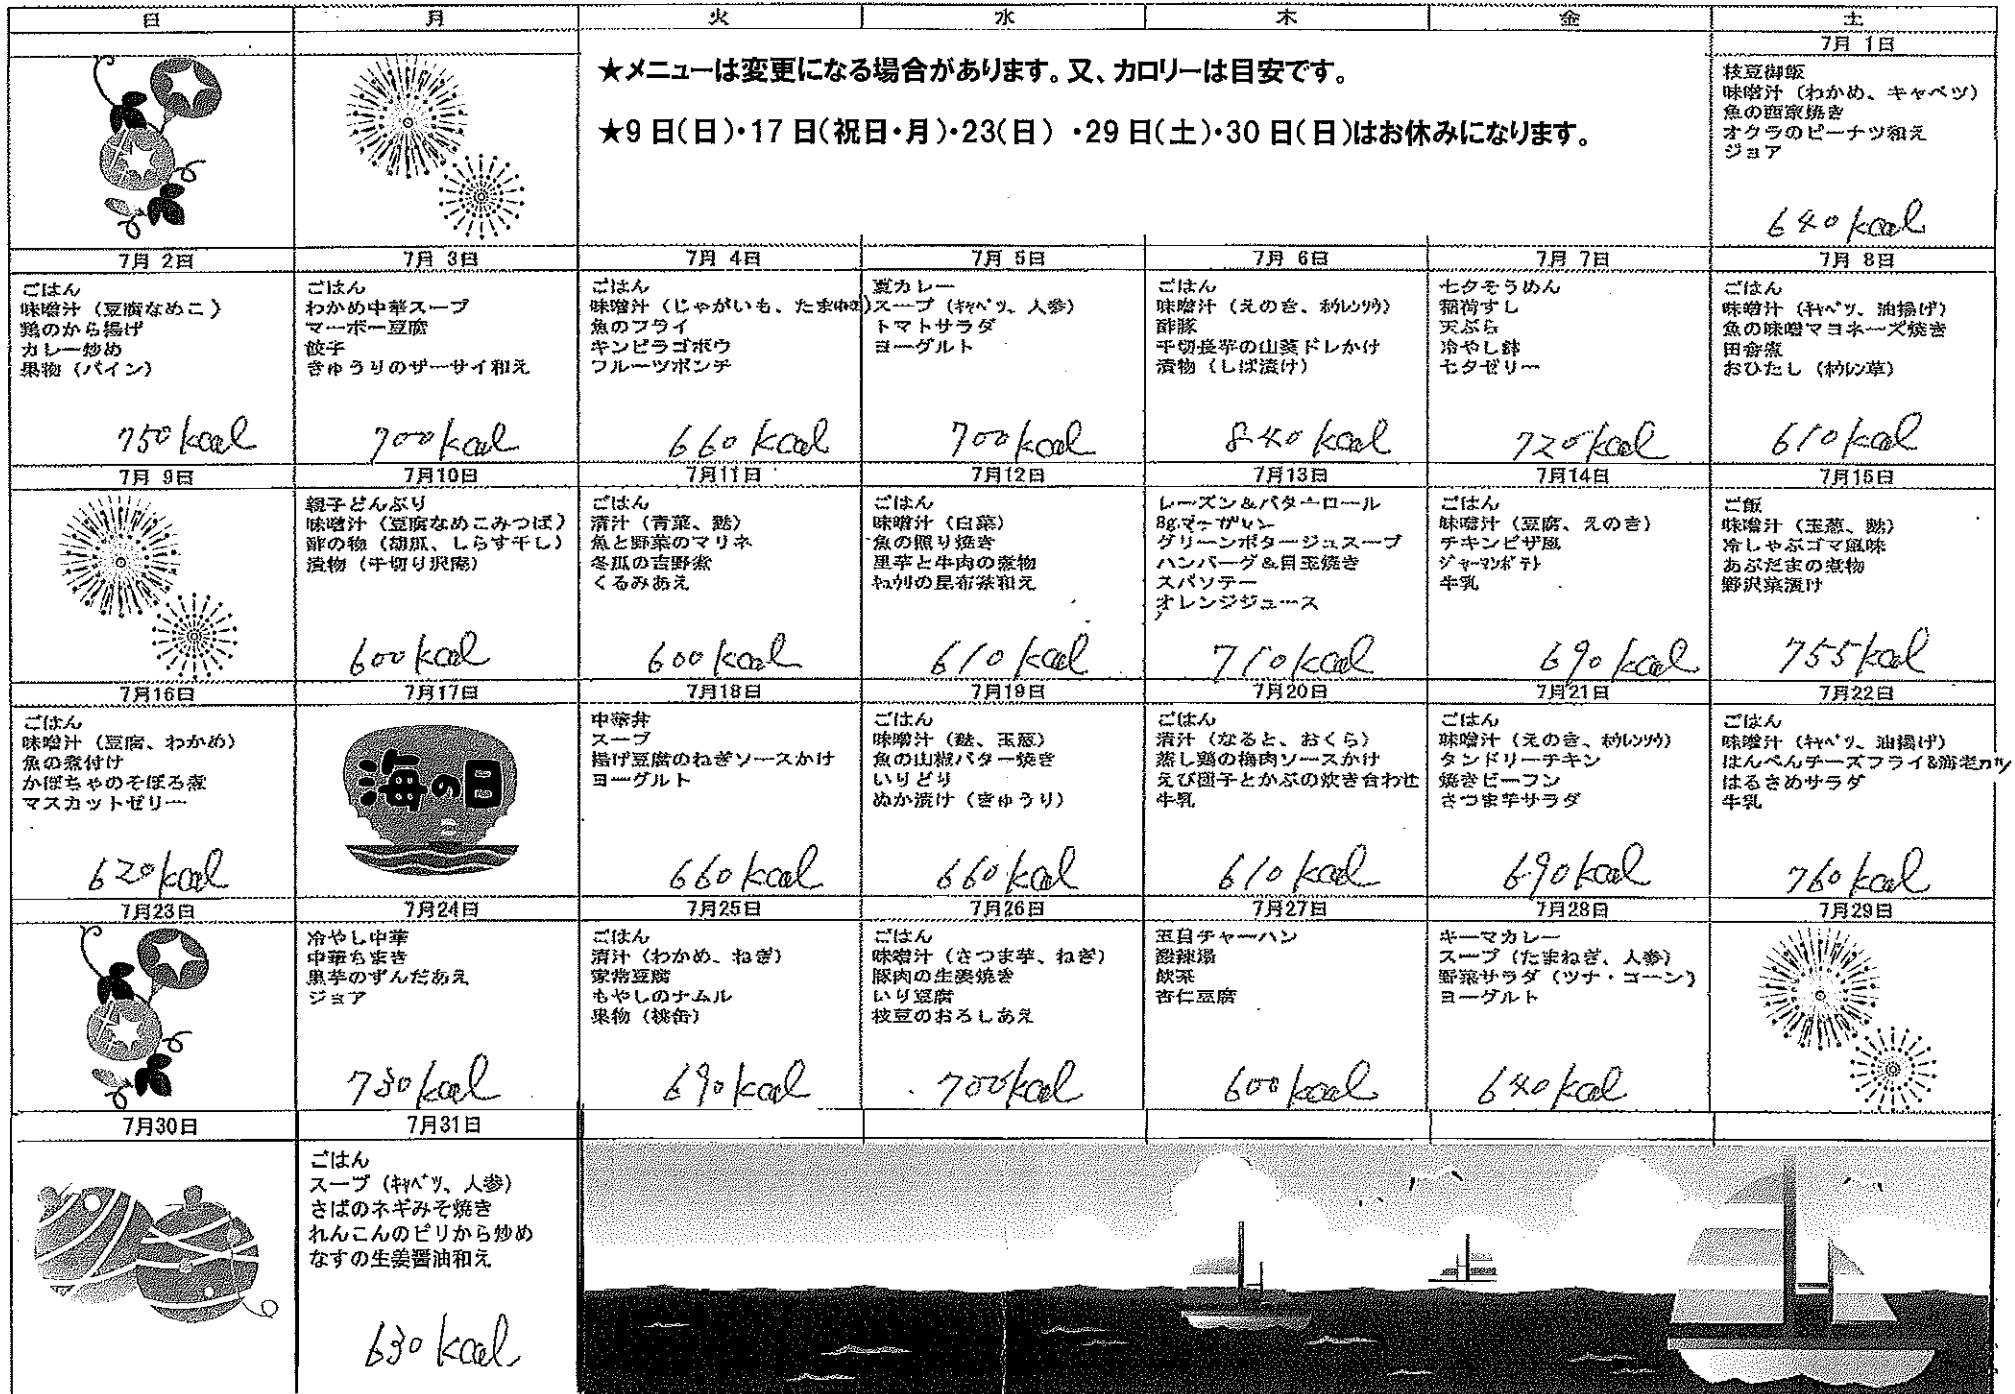 日 月 火 水 木 金 土
★メニューは変更になる場合があります。又、カロリーは目安です。
★9日(日)・17日(祝日・月)・23(日)・29日(土)・30日(日)はお休みになります。
7月 1日
枝豆御飯
味噌汁（わかめ、キャベツ）
魚の西京焼き
オクラのピーナツ和え
ジョア
640kcal
7月 2日
ごはん
味噌汁（豆腐なめこ）
鶏のから揚げ
カレー炒め
果物（パイン）
750kcal
7月 3日
ごはん
わかめ中華スープ
マーボー豆腐
餃子
きゅうりのザーサイ和え
700kcal
7月 4日
ごはん
味噌汁（じゃがいも、たまねぎ）
魚のフライ
キンピラゴボウ
フルーツポンチ
660kcal
7月 5日
夏カレー
スープ（ｷｬﾍﾞﾂ、人参）
トマトサラダ
ヨーグルト
700kcal
7月 6日
ごはん
味噌汁（えのき、ﾎｳﾚﾝｿｳ）
酢豚
千切長芋の山葵ドレかけ
漬物（しば漬け）
840kcal
7月 7日
七夕そうめん
稲荷すし
天ぷら
冷やし鉢
七夕ゼリー
720kcal
7月 8日
ごはん
味噌汁（ｷｬﾍﾞﾂ、油揚げ）
魚の味噌マヨネーズ焼き
田舎煮
おひたし（ﾎｳﾚﾝ草）
610kcal
7月 9日
7月10日
親子どんぶり
味噌汁（豆腐なめこみつば）
酢の物（胡瓜、しらす干し）
漬物（千切り沢庵）
600kcal
7月11日
ごはん
清汁（青菜、麩）
魚と野菜のマリネ
冬瓜の吉野煮
くるみあえ
600kcal
7月12日
ごはん
味噌汁（白菜）
魚の照り焼き
里芋と牛肉の煮物
ｷｭｳﾘの昆布茶和え
610kcal
7月13日
レーズン＆バターロール
8gマーガリン
グリーンポタージュスープ
ハンバーグ＆目玉焼き
スパソテー
オレンジジュース
710kcal
7月14日
ごはん
味噌汁（豆腐、えのき）
チキンピザ風
ｼﾞｬｰﾏﾝﾎﾟﾃﾄ
牛乳
690kcal
7月15日
ご飯
味噌汁（玉葱、麩）
冷しゃぶゴマ風味
あぶたまの煮物
野沢菜漬け
755kcal
7月16日
ごはん
味噌汁（豆腐、わかめ）
魚の煮付け
かぼちゃのそぼろ煮
マスカットゼリー
620kcal
7月17日
海の日
7月18日
中華丼
スープ
揚げ豆腐のねぎソースかけ
ヨーグルト
660kcal
7月19日
ごはん
味噌汁（麩、玉葱）
魚の山椒バター焼き
いりどり
ぬか漬け（きゅうり）
660kcal
7月20日
ごはん
清汁（なると、おくら）
蒸し鶏の梅肉ソースかけ
えび団子とかぶの炊き合わせ
牛乳
610kcal
7月21日
ごはん
味噌汁（えのき、ﾎｳﾚﾝｿｳ）
タンドリーチキン
焼きビーフン
さつま芋サラダ
690kcal
7月22日
ごはん
味噌汁（ｷｬﾍﾞﾂ、油揚げ）
はんぺんチーズフライ&海老ｶﾂ
はるさめサラダ
牛乳
760kcal
7月23日
7月24日
冷やし中華
中華ちまき
里芋のずんだあえ
ジョア
730kcal
7月25日
ごはん
清汁（わかめ、ねぎ）
家常豆腐
もやしのナムル
果物（桃缶）
690kcal
7月26日
ごはん
味噌汁（さつま芋、ねぎ）
豚肉の生姜焼き
いり豆腐
枝豆のおろしあえ
700kcal
7月27日
五目チャーハン
酸辣湯
飲茶
杏仁豆腐
600kcal
7月28日
キーマカレー
スープ（たまねぎ、人参）
野菜サラダ（ツナ・コーン）
ヨーグルト
640kcal
7月29日
7月30日
7月31日
ごはん
スープ（ｷｬﾍﾞﾂ、人参）
さばのネギみそ焼き
れんこんのピリから炒め
なすの生姜醤油和え
630kcal